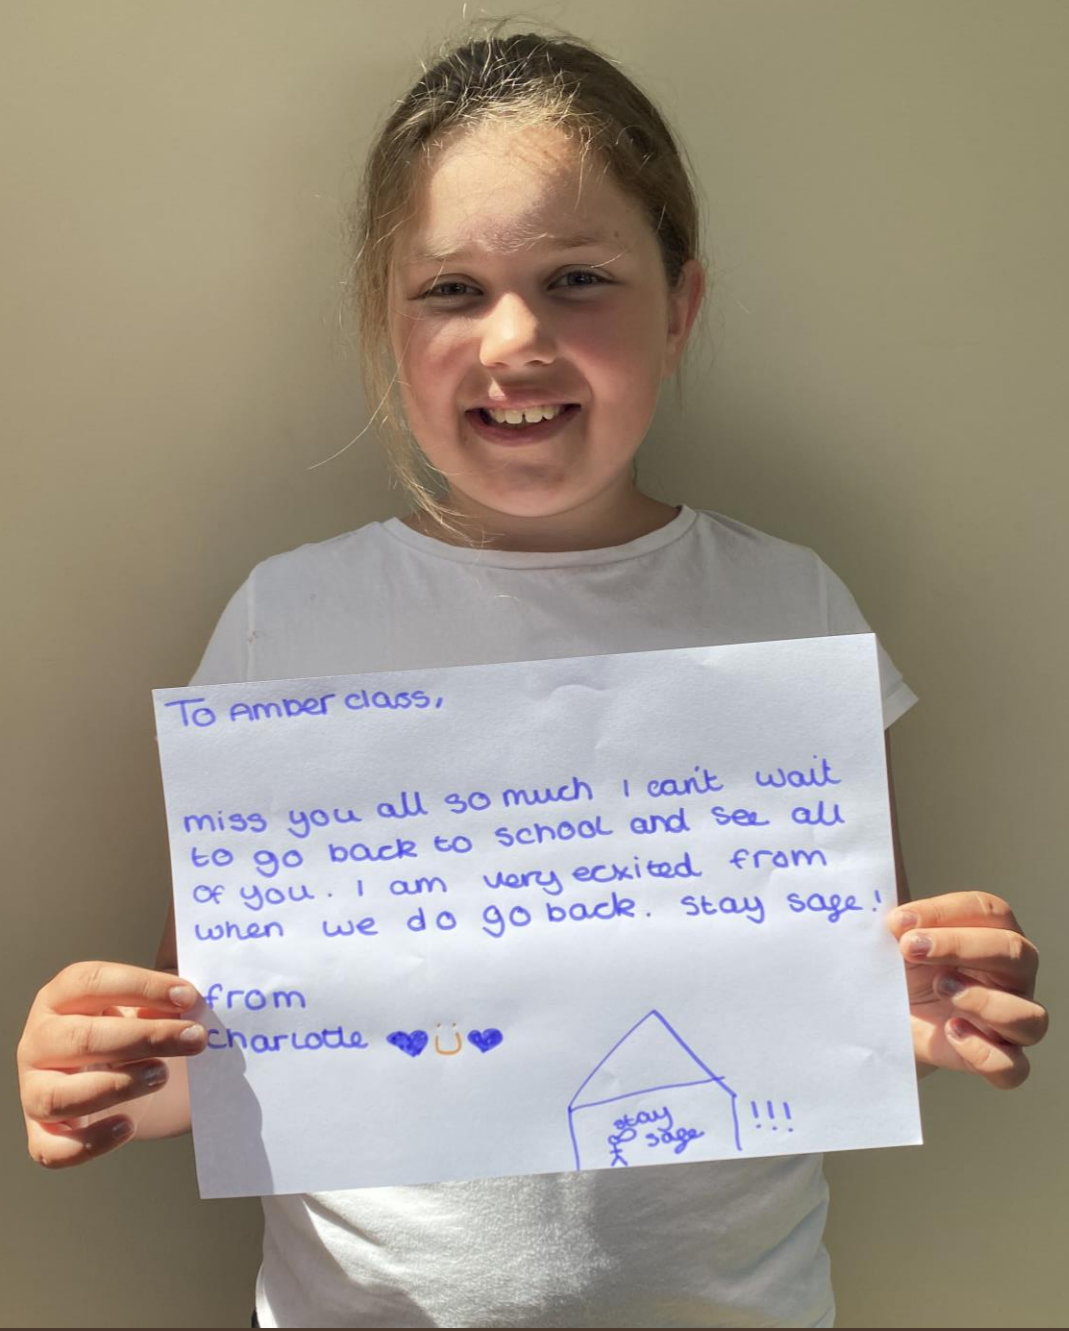 To Amber class,
miss you all so much I can't wait
to go back to school and see all
of you. I am very ecxited from
when we do go back. stay sage!
from
charlotte
stay
sage
!!!